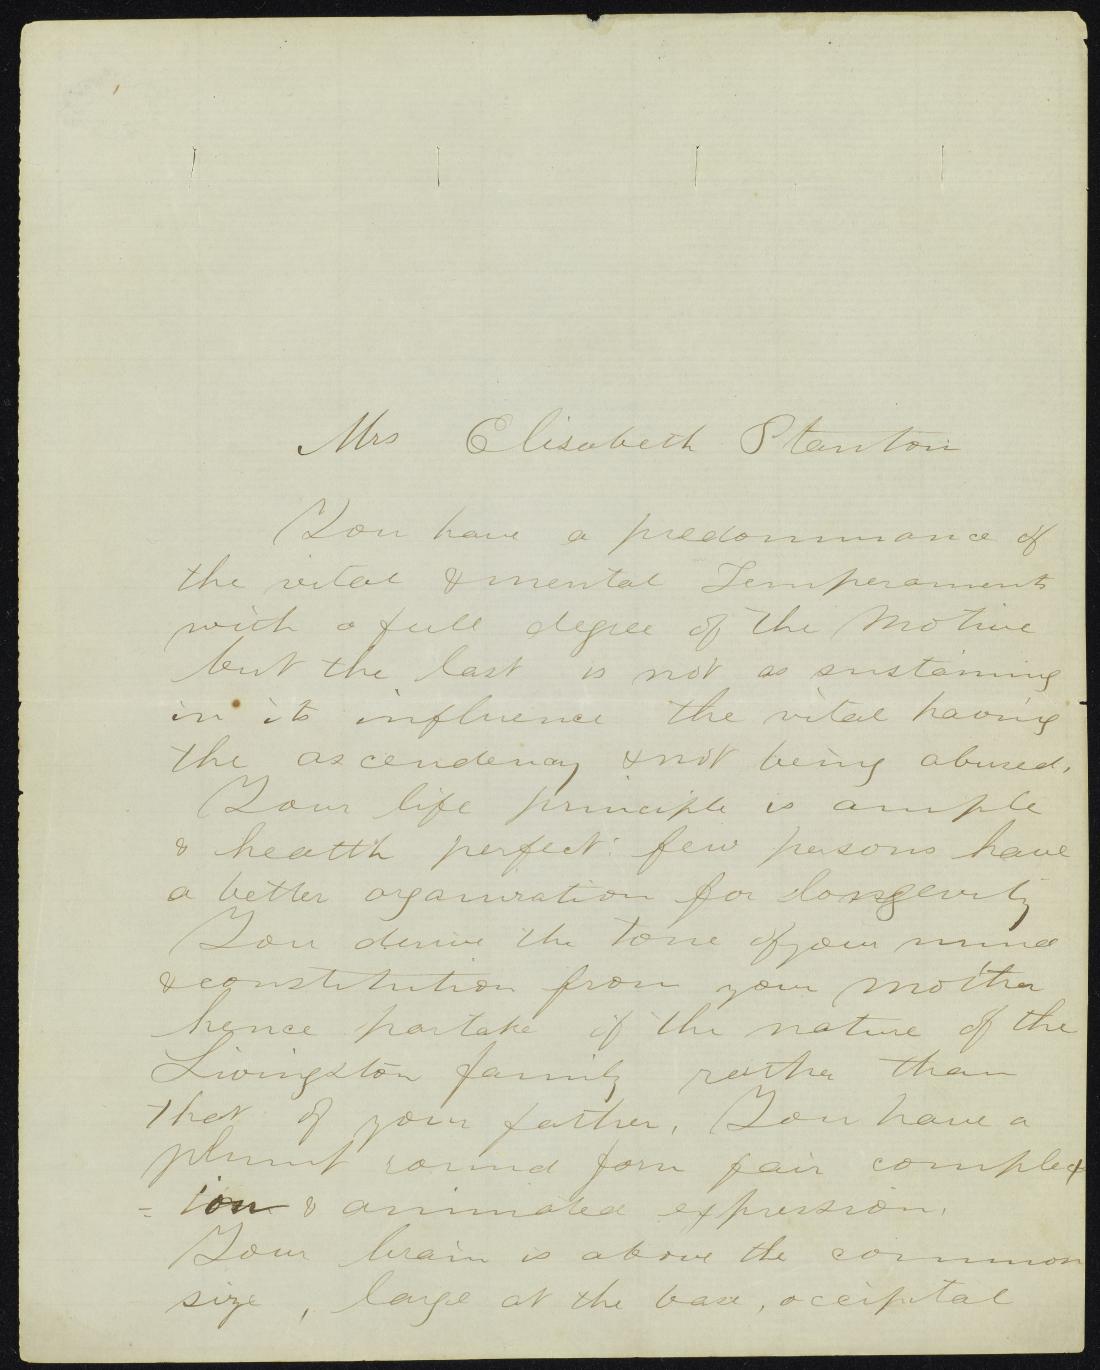 Mrs Elisabeth Stanton
You have a predominance of
the vital & mental Temperaments
with a full degree of the Motive
but the last is not as sustaining
in its influence the vital having
the ascendency & not being abused.
Your life principle is ample
& health perfect: few persons have
a better organization for longevity
You derive the tone of your mind
& constitution from your mother
hence partake of the nature of the
Livingston family rather than
that of your father. You have a
plump round form fair complex
= ion & animated expression.
Your brain is above the common
size, large at the base, occipital